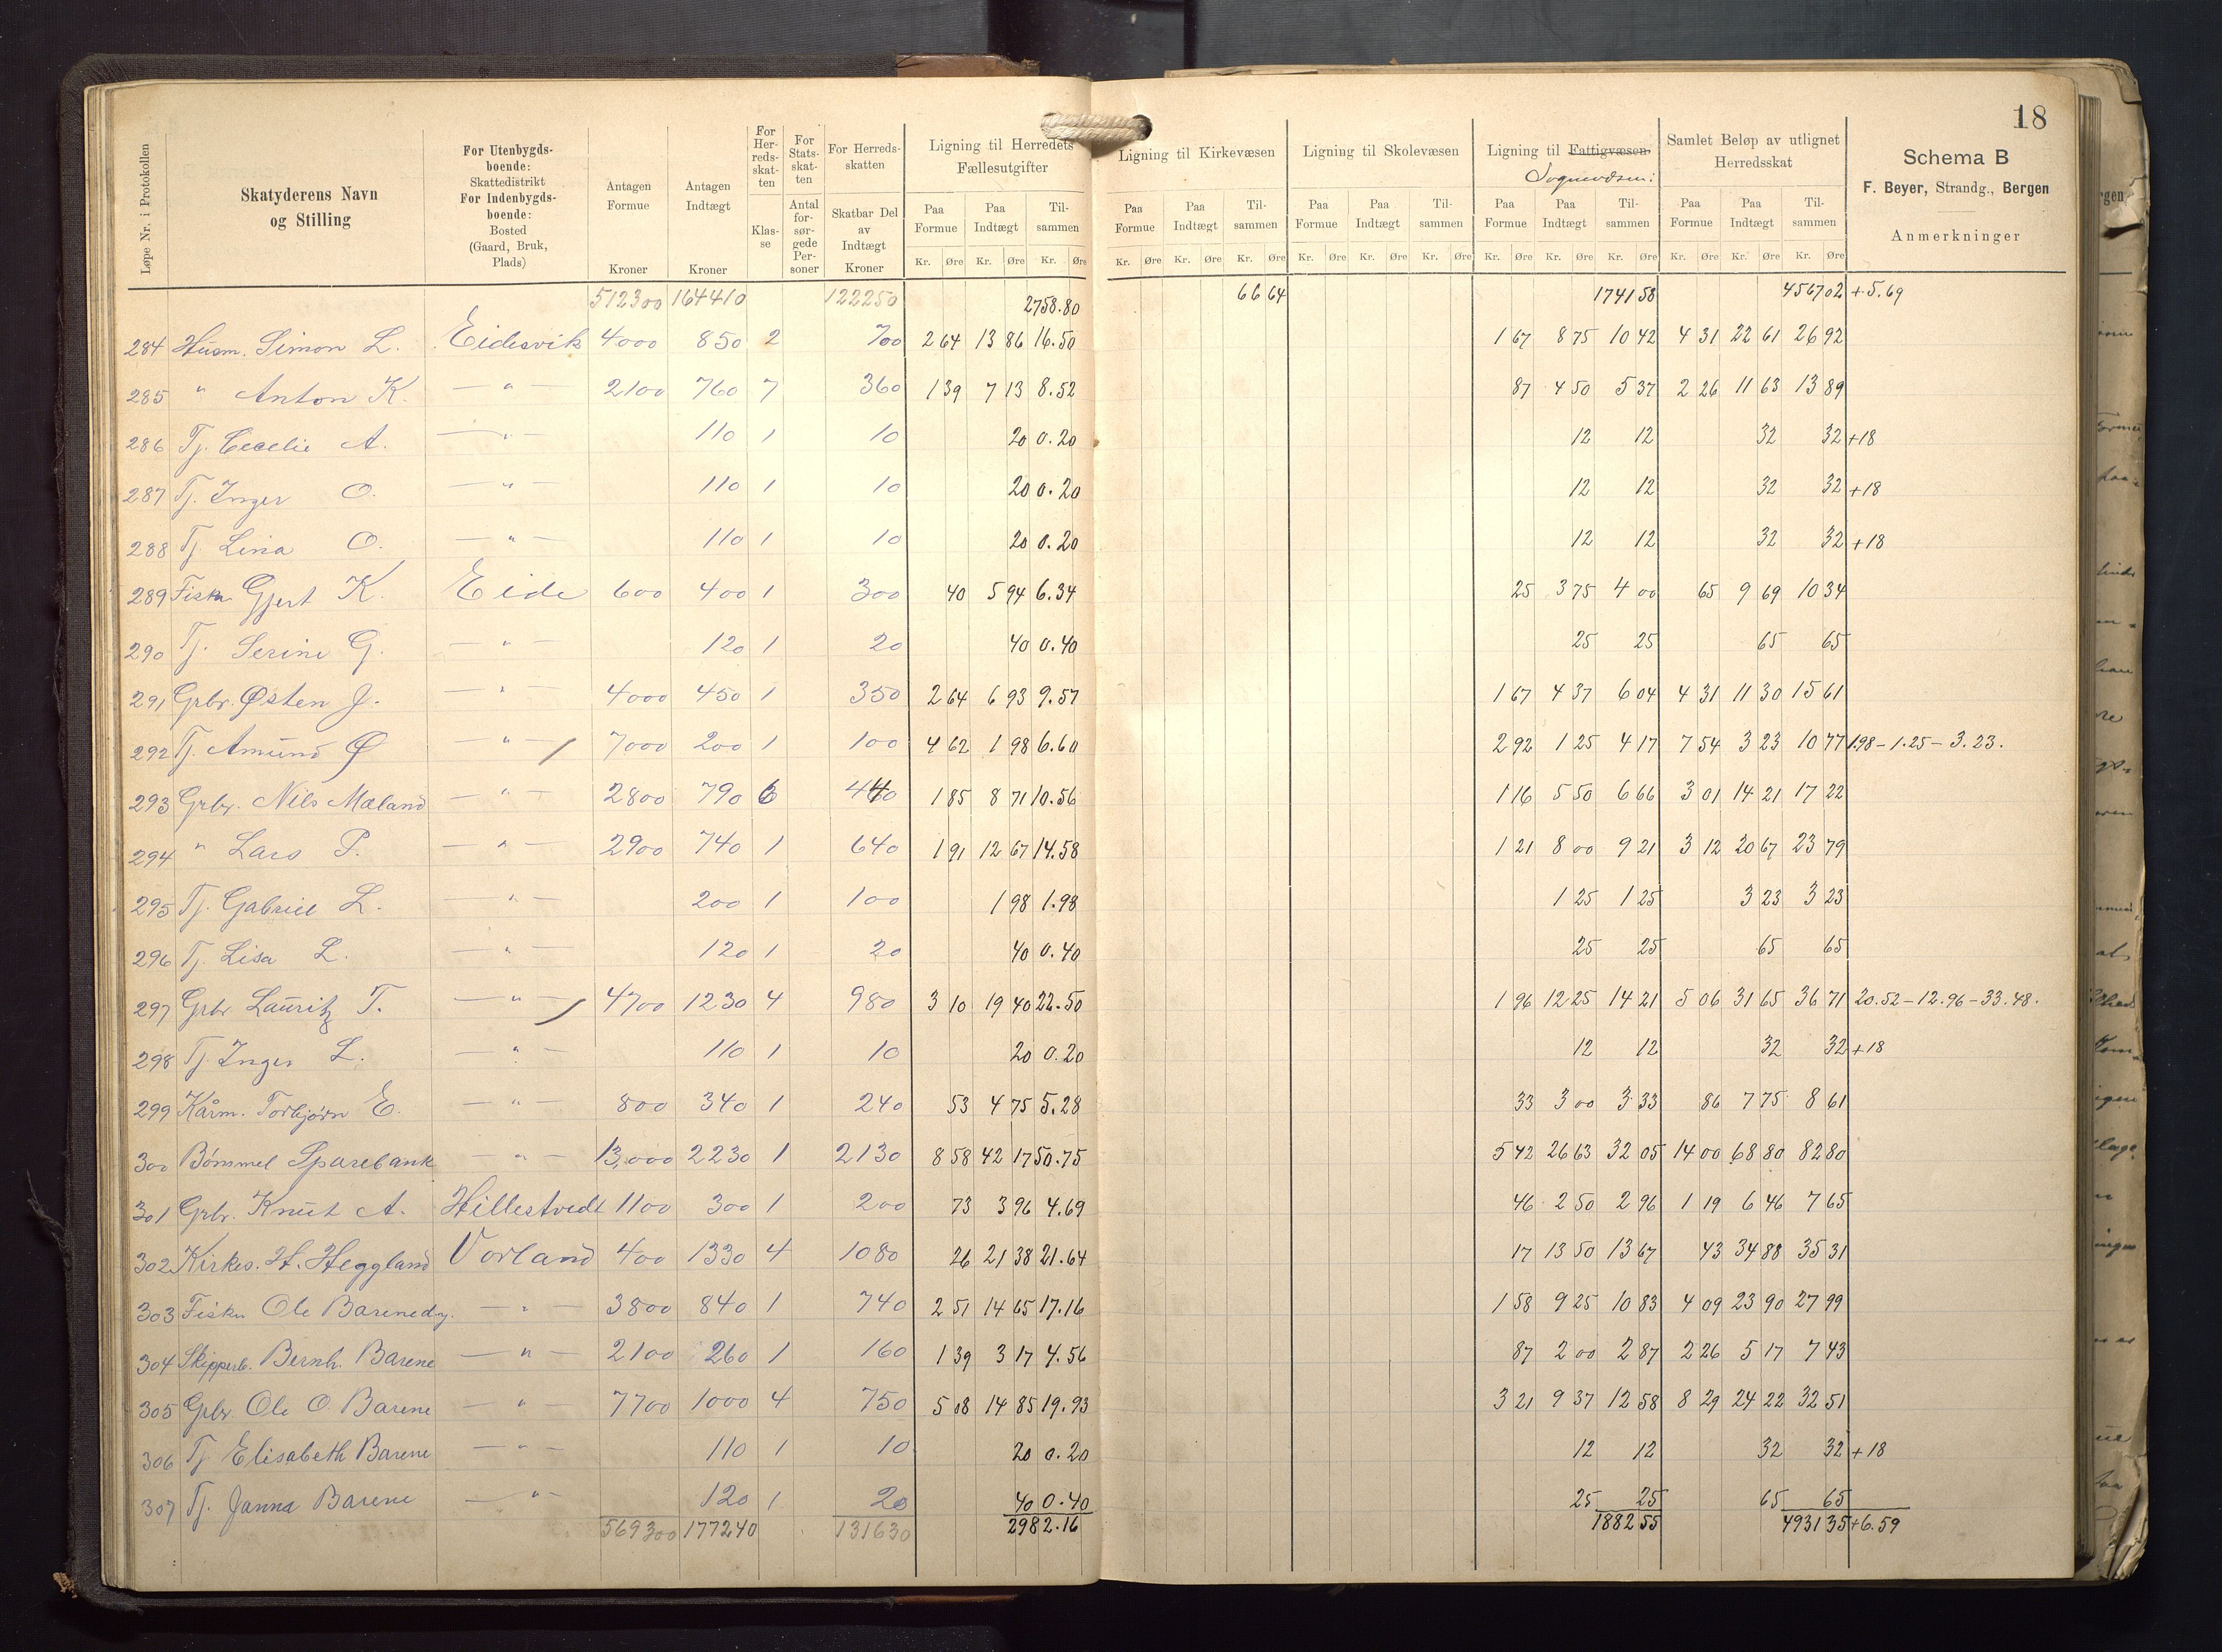 18
Løpe Nr. i Protokollen
Skatyderens Navn og Stilling
For Utenbygdsboende: Skattedistrikt For Indenbygdsboende: Bosted (Gaard, Bruk, Plads)
Antagen Formue Kroner
Antagen Indtægt Kroner
For Herredsskatten Klasse
For Statsskatten Antal forsørgede Personer
For Herredsskatten Skatbar Del av Indtægt Kroner
Ligning til Herredets Fællesutgifter
Paa Formue Paa Indtægt Tilsammen
Kr. Øre Kr. Øre Kr. Øre
Ligning til Kirkevæsen
Paa Formue Paa Indtægt Tilsammen
Kr. Øre Kr. Øre Kr. Øre
Ligning til Skolevæsen
Paa Formue Paa Indtægt Tilsammen
Kr. Øre Kr. Øre Kr. Øre
Ligning til Fattigvæsen
Sognevæsen:
Paa Formue Paa Indtægt Tilsammen
Kr. Øre Kr. Øre Kr. Øre
Samlet Beløp av utlignet Herredsskat
Paa Formue Paa Indtægt Tilsammen
Kr. Øre Kr. Øre Kr. Øre
Schema B
F. Beyer, Strandg., Bergen
Anmerkninger
512300 164410 122250 2758.80 66 64 1741 58 4567 02 + 5.69
284 Husm. Simon L. Eidesvik 4000 850 2 700 2 64 13 86 16.50 1 67 8 75 10 42 4 31 22 61 26 92
285 " Anton K. — " — 2100 760 7 360 1 39 7 13 8.52 87 4 50 5 37 2 26 11 63 13 89
286 Tj. Cecelie A. — " — 110 1 10 20 0.20 12 12 32 32 +18
287 Tj. Inger O. — " — 110 1 10 20 0.20 12 12 32 32 +18
288 Tj. Lina O. — " — 110 1 10 20 0.20 12 12 32 32 +18
289 Fisker Gjert K. Eide 600 400 1 300 40 5 94 6.34 25 3 75 4 00 65 9 69 10 34
290 Tj. Serine G. — " — 120 1 20 40 0.40 25 25 65 65
291 Grbr. Østen J. — " — 4000 450 1 350 2 64 6 93 9.57 1 67 4 37 6 04 4 31 11 30 15 61
292 Tj. Amund Ø — " — 7000 200 1 100 4 62 1 98 6.60 2 92 1 25 4 17 7 54 3 23 10 77 1.98 – 1.25 – 3.23.
293 Grbr. Nils Mæland — " — 2800 790 6 440 1 85 8 71 10.56 1 16 5 50 6 66 3 01 14 21 17 22
294 " Lars P. — " — 2900 740 1 640 1 91 12 67 14.58 1 21 8 00 9 21 3 12 20 67 23 79
295 Tj. Gabriel L. — " — 200 1 100 1 98 1.98 1 25 1 25 3 23 3 23
296 Tj. Lisa L. — " — 120 1 20 40 0.40 25 25 65 65
297 Grbr Lauritz T. — " — 4700 1230 4 980 3 10 19 40 22.50 1 96 12 25 14 21 5 06 31 65 36 71 20.52 – 12.96 – 33.48.
298 Tj. Inger L. — " — 110 1 10 20 0.20 12 12 32 32 +18
299 Kårm. Torbjørn E. — " — 800 340 1 240 53 4 75 5.28 33 3 00 3 33 86 7 75 8 61
300 Bømmel Sparebank — " — 13,000 2230 1 2130 8 58 42 17 50.75 5 42 26 63 32 05 14 00 68 80 82 80
301 Grbr. Knut A. Hillestvedt 1100 300 1 200 73 3 96 4.69 46 2 50 2 96 1 19 6 46 7 65
302 Kirkes. H. Heggland Vorland 400 1330 4 1080 26 21 38 21.64 17 13 50 13 67 43 34 88 35 31
303 Fisker Ole Barenedy. — " — 3800 840 1 740 2 51 14 65 17.16 1 58 9 25 10 83 4 09 23 90 27 99
304 Skipperb. Bernh. Barene — " — 2100 260 1 160 1 39 3 17 4.56 87 2 00 2 87 2 26 5 17 7 43
305 Grbr. Ole O. Barene — " — 7700 1000 4 750 5 08 14 85 19.93 3 21 9 37 12 58 8 29 24 22 32 51
306 Tj Elisabeth Barene — " — 110 1 10 20 0.20 12 12 32 32 +18
307 Tj. Janna Barene — " — 120 1 20 40 0.40 25 25 65 65
569300 177240 131630 2982.16 1882 55 4931 35 +6.59